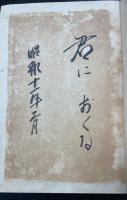 君に おくる
昭和十一年二月